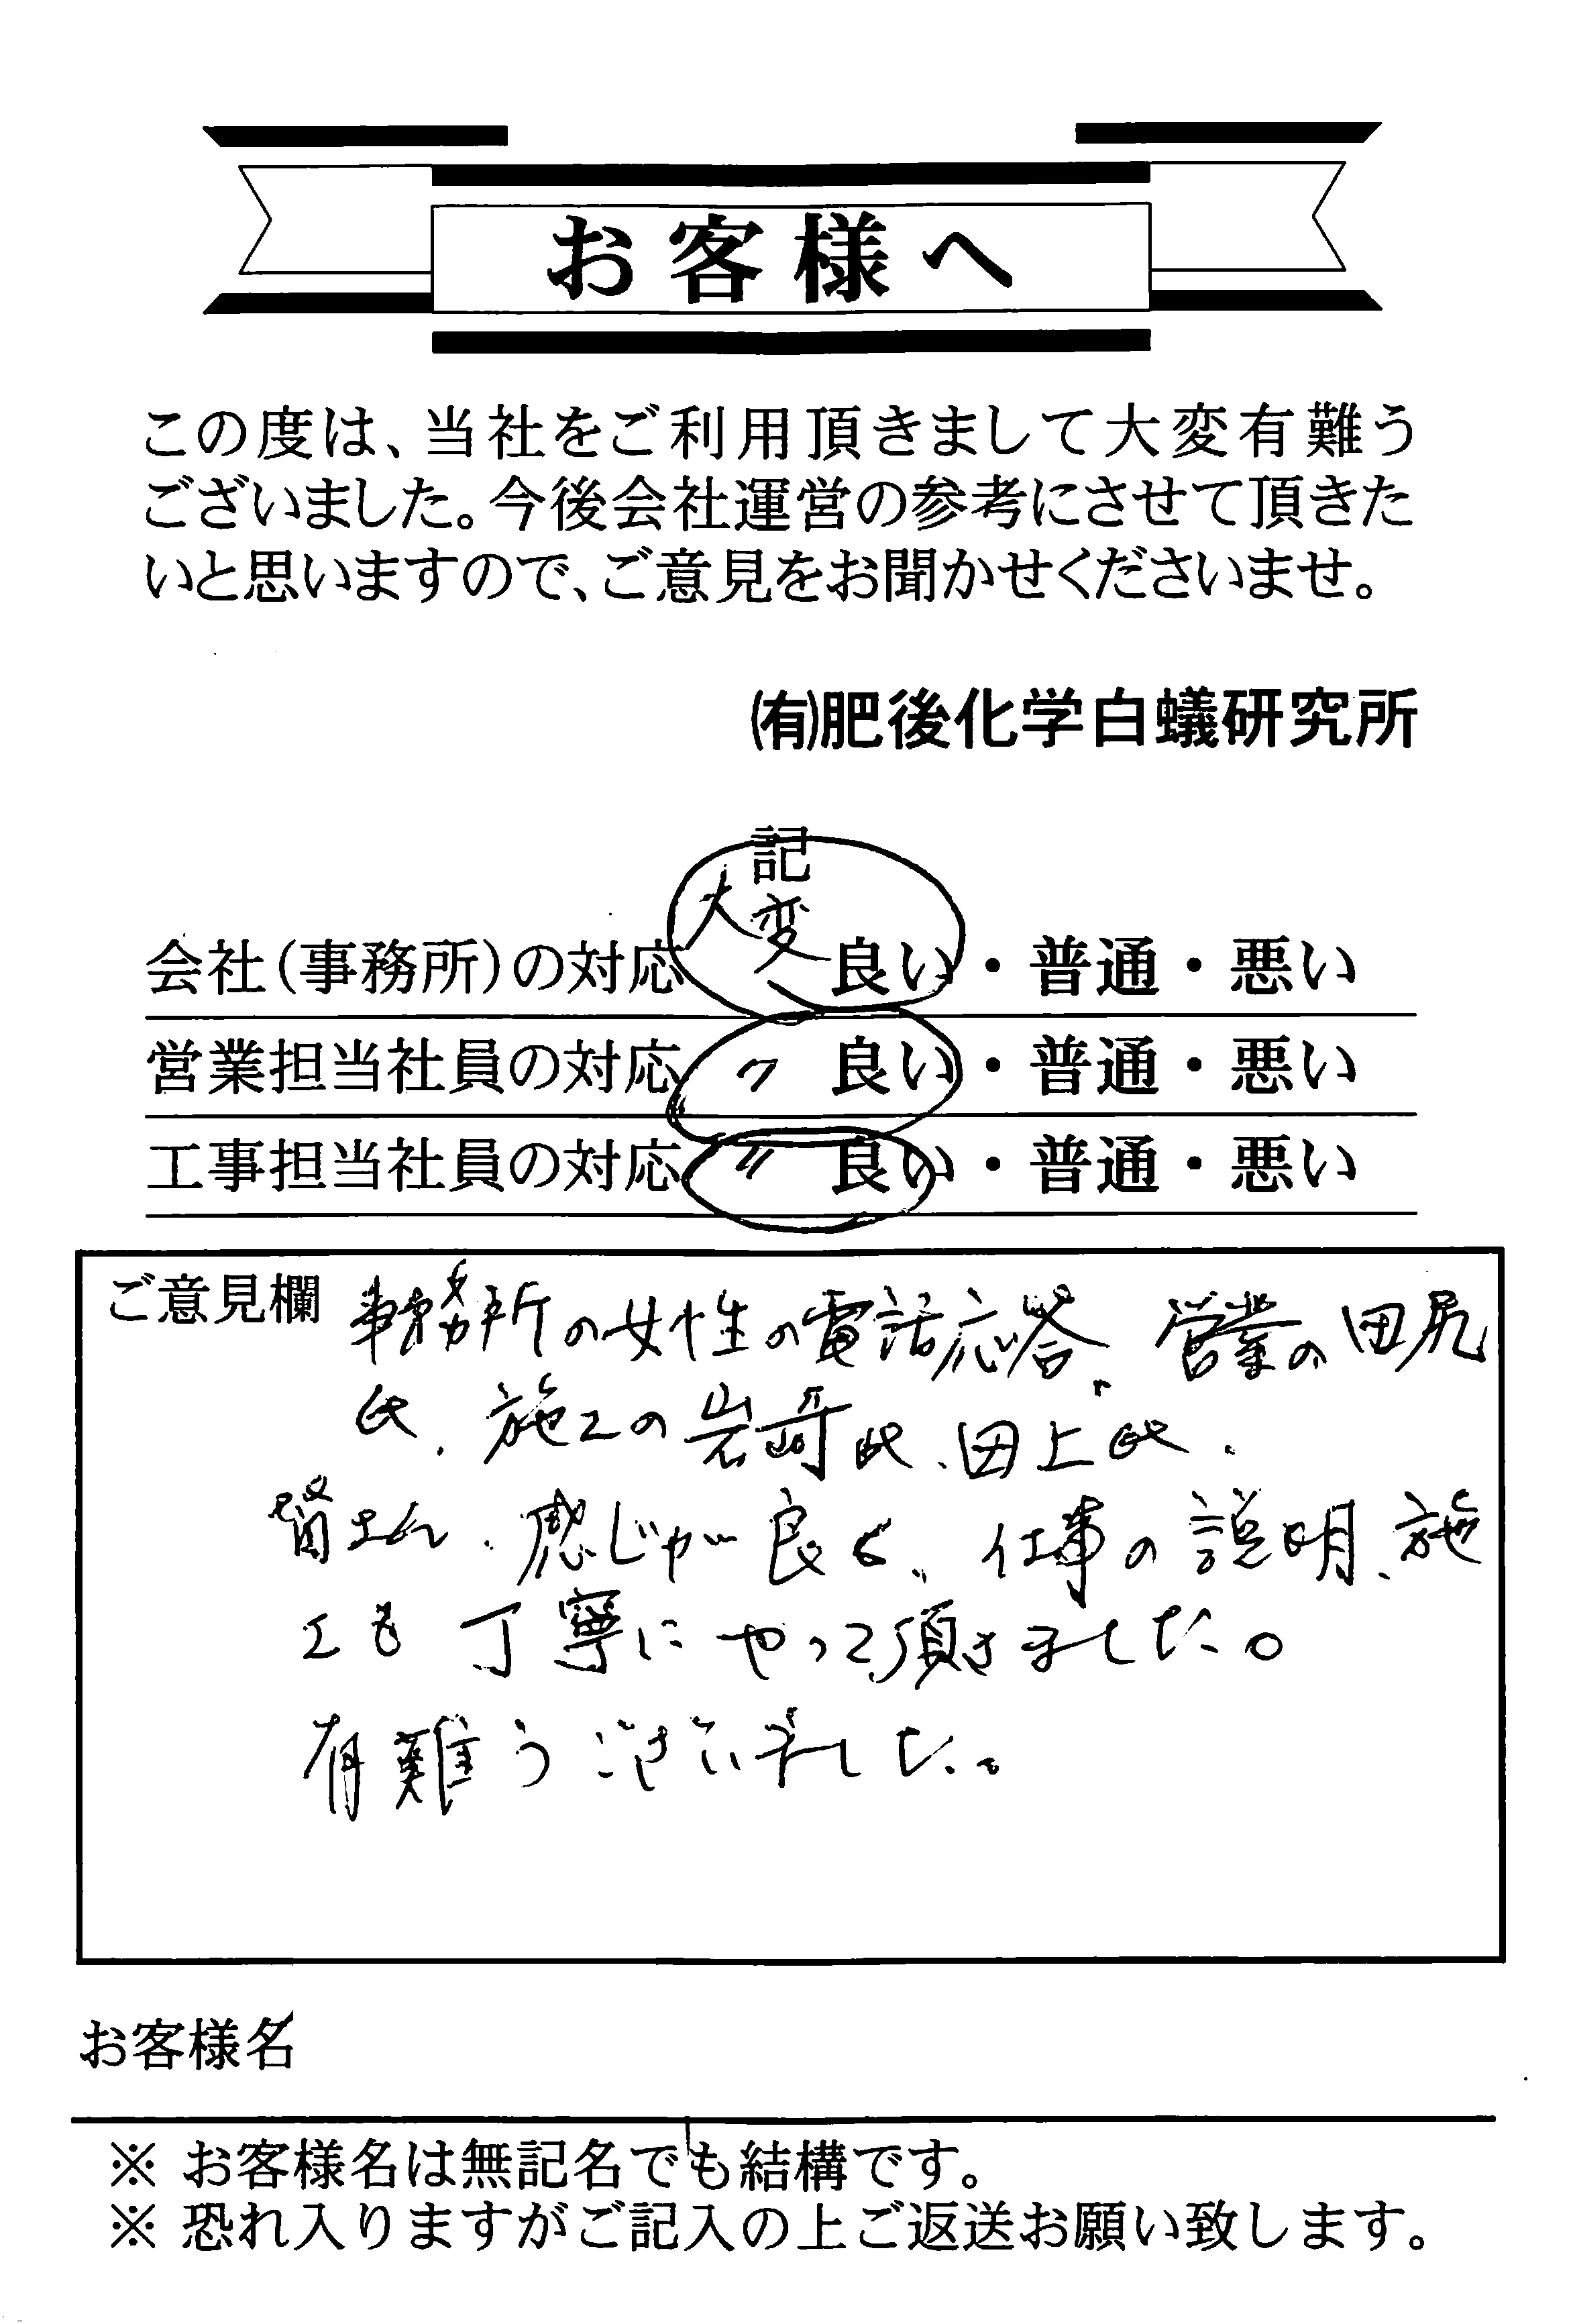 お客様へ
この度は、当社をご利用頂きまして大変有難う
ございました。今後会社運営の参考にさせて頂きた
いと思いますので、ご意見をお聞かせくださいませ。
㈲肥後化学白蟻研究所
記
会社(事務所)の対応 大変 良い・普通・悪い
営業担当社員の対応 〃 良い・普通・悪い
工事担当社員の対応 〃 良い・普通・悪い
ご意見欄 事務所の女性の電話応答、営業の田尻
氏、施工の岩﨑氏、田上氏、
皆さん、感じが良く、仕事の説明、施
工も丁寧にやって頂きました。
有難うございました。
お客様名
※ お客様名は無記名でも結構です。
※ 恐れ入りますがご記入の上ご返送お願い致します。